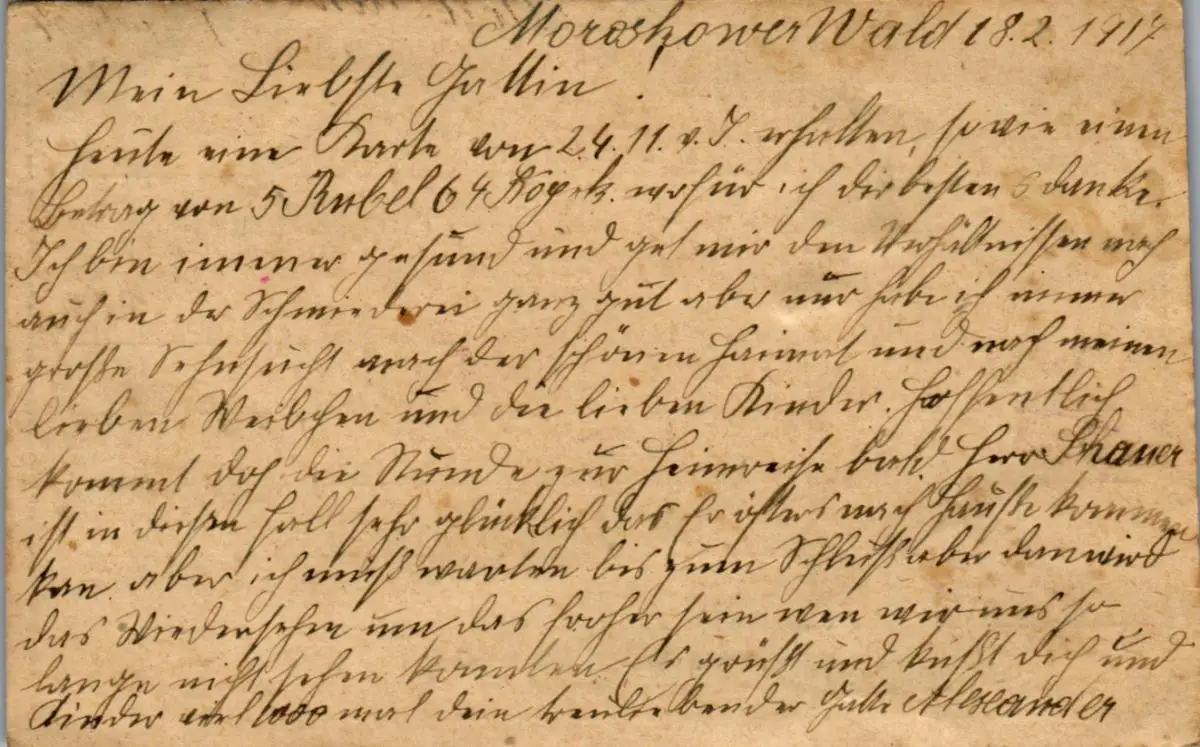 Moroskower Wald 18.2.1917
Mein Liebste Gattin!
Heute eine Karte von 24.11.v.J. erhalten, sowie einen
Betrag von 5 Rubel 64 Kopek. wofür ich dir bestens danke.
Ich bin immer gesund und get mir den Verhältnissen nach
auch in der Schmiederei ganz gut aber nur habe ich immer
große Sehnsucht nach der schönen Heimat und nach meinen
lieben Weibchen und die lieben Kinder. Hoffentlich
kommt doch die Stunde zur Heimreise bald Herr
ist in diesen Fall sehr glücklich das Er öfters nach Hauße kommen
kan aber ich muß warten bis zum Schluß aber dan wird
das Wiedersehen um das froher sein wen wir uns so
lange nicht sehen konnten. Es grüßt und küßt dich und
Kinder viel 1000 mal dein treuliebender Gatte Alexander